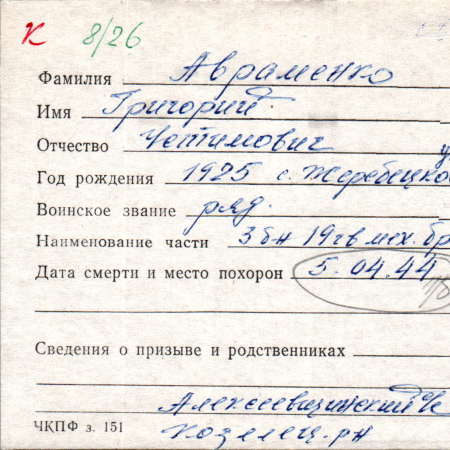 К 8/26
Фамилия Авраменко
Имя Григорий
Отчество Устимович
Год рождения 1925 с. Жеребецко
Воинское звание ряд.
Наименование части 3 бн 19 гв мех. бр
Дата смерти и место похорон 5.04.44
Сведения о призыве и родственниках
Алексеевицинский
ЧКПФ з. 151 Козелец. рн